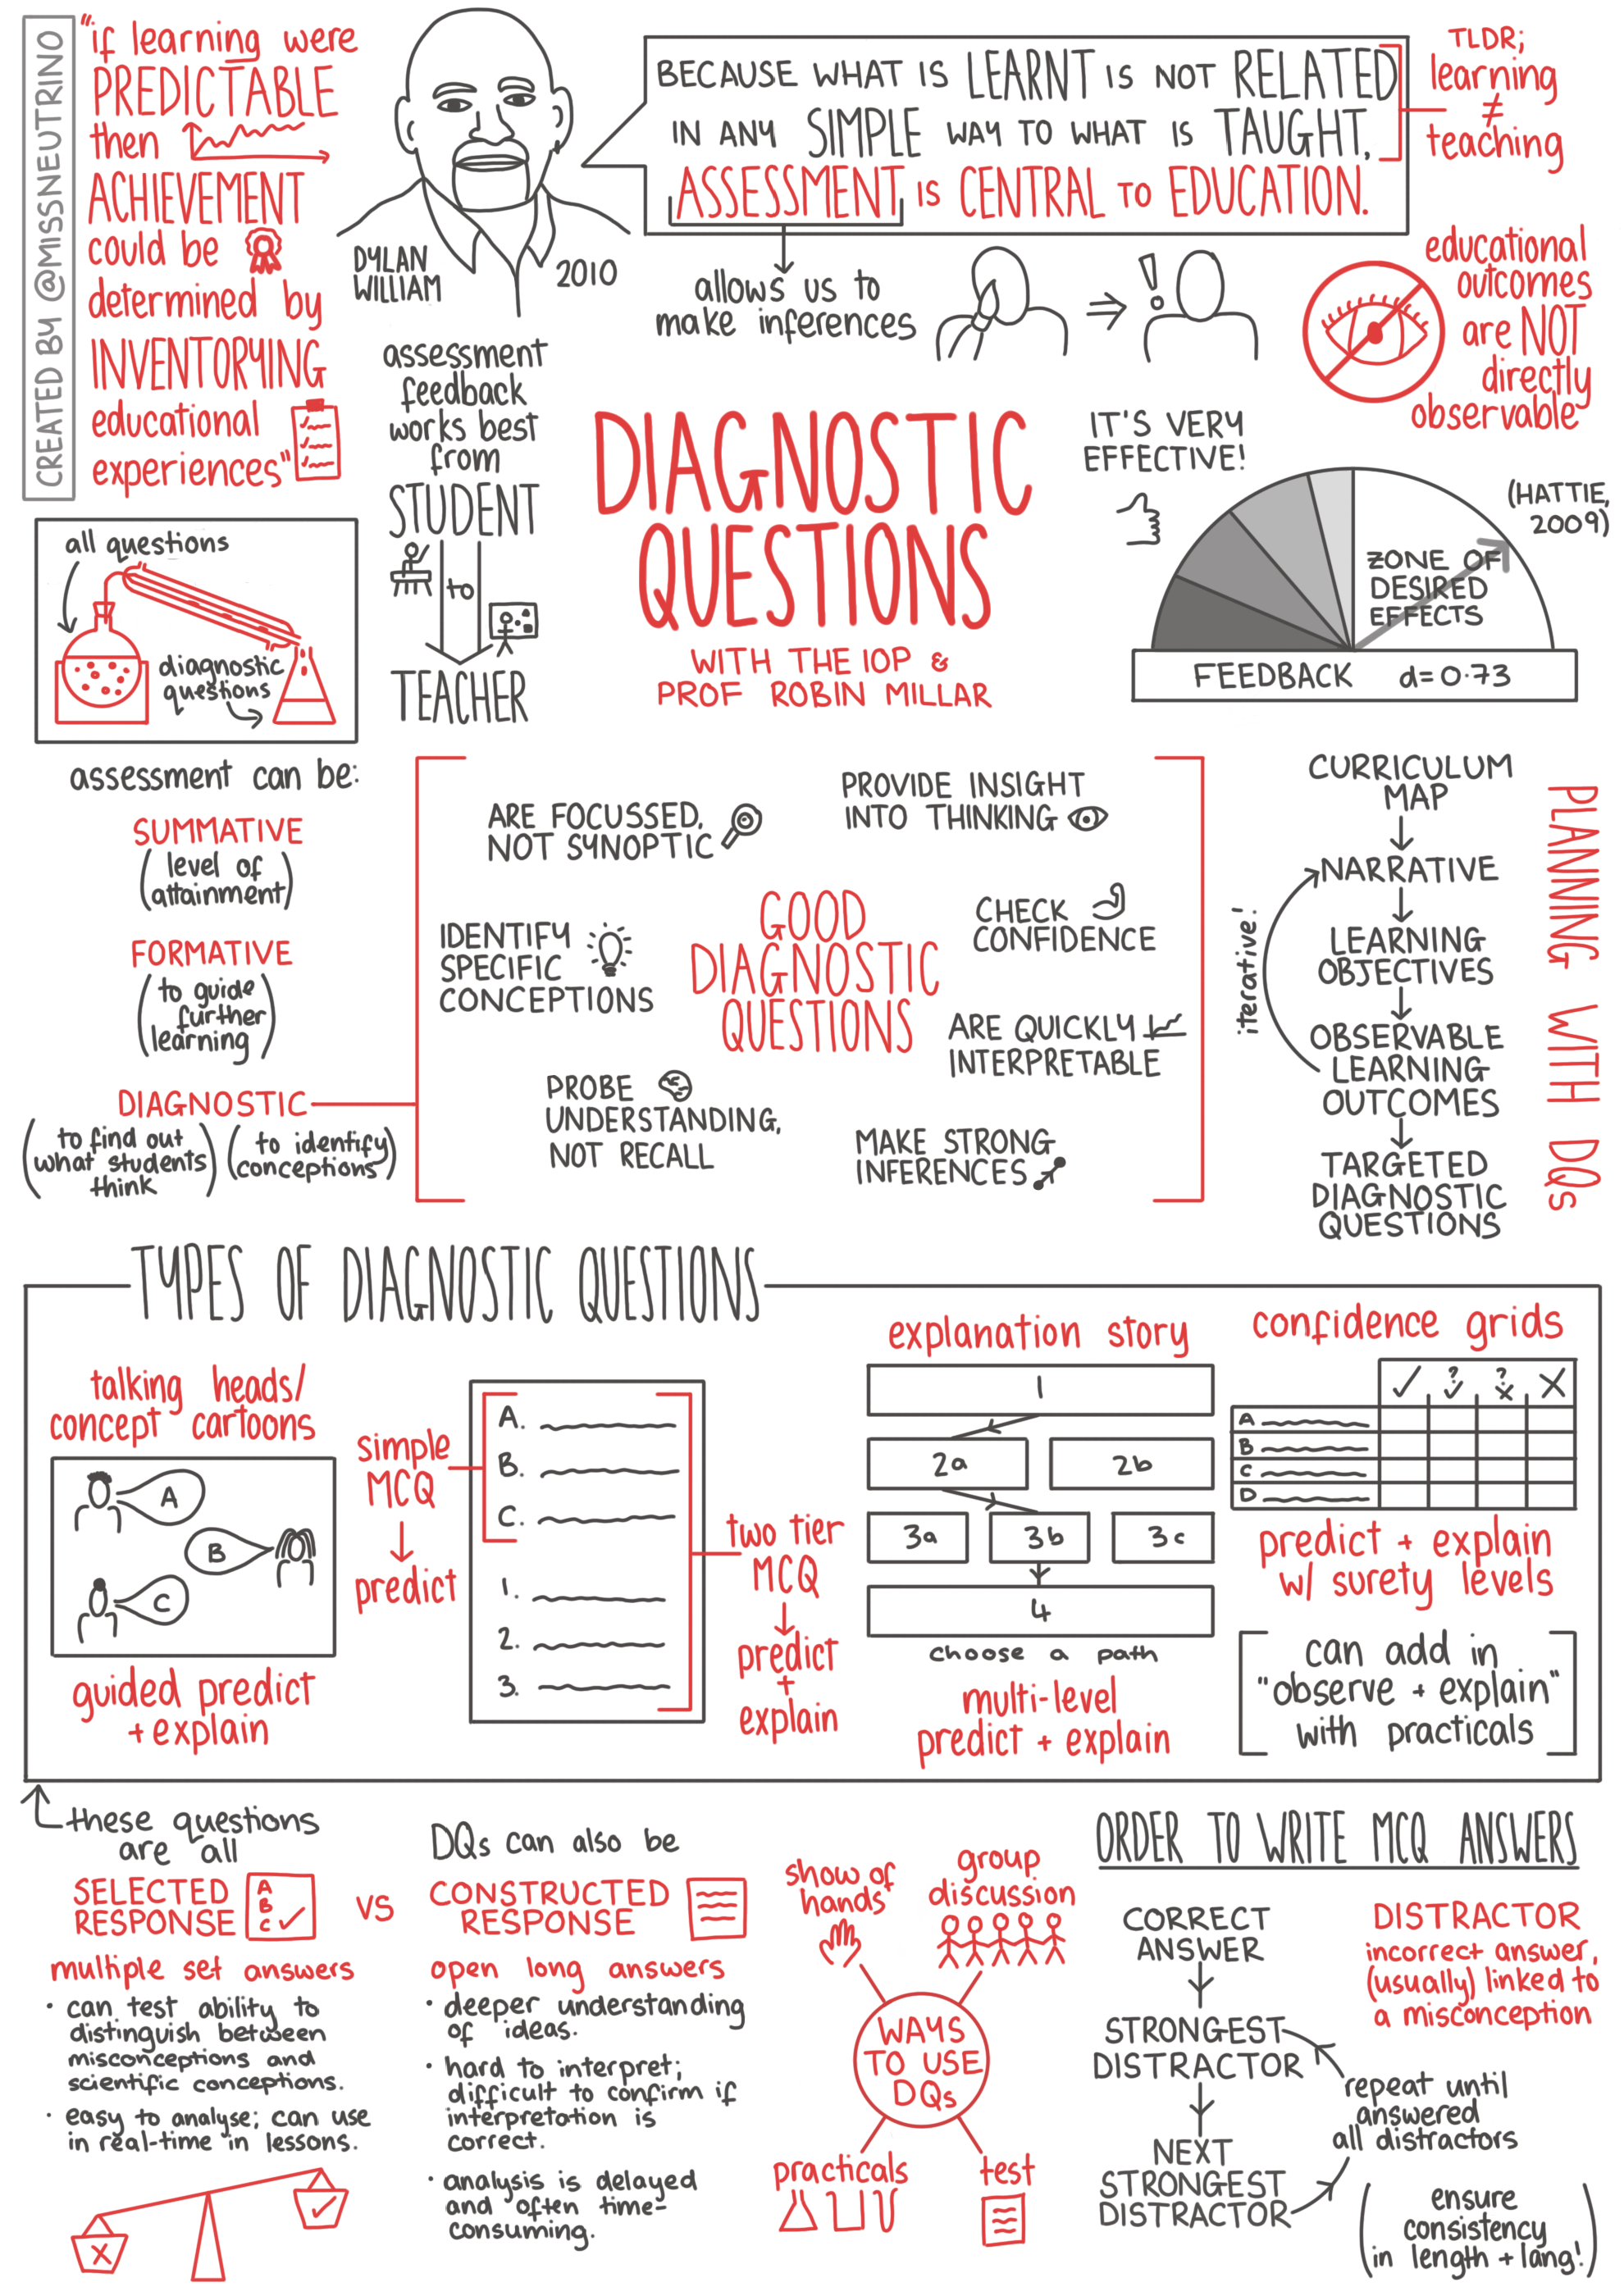 CREATED BY @MISSNEUTRINO
"if learning were
PREDICTABLE
then
ACHIEVEMENT
could be
determined by
INVENTORYING
educational
experiences"
DYLAN
WILLIAM
2010
BECAUSE WHAT IS LEARNT IS NOT RELATED
IN ANY SIMPLE WAY TO WHAT IS TAUGHT,
ASSESSMENT IS CENTRAL TO EDUCATION.
TLDR;
learning
≠
teaching
allows us to
make inferences
!
educational
outcomes
are NOT
directly
observable
assessment
feedback
works best
from
STUDENT
to
TEACHER
DIAGNOSTIC
QUESTIONS
WITH THE IOP &
PROF ROBIN MILLAR
IT'S VERY
EFFECTIVE!
(HATTIE,
2009)
ZONE OF
DESIRED
EFFECTS
FEEDBACK d=0.73
all questions
diagnostic
questions
assessment can be:
SUMMATIVE
(level of
attainment)
FORMATIVE
(to guide
further
learning)
DIAGNOSTIC
(to find out
what students
think)
(to identify
conceptions)
ARE FOCUSSED,
NOT SYNOPTIC
PROVIDE INSIGHT
INTO THINKING
IDENTIFY
SPECIFIC
CONCEPTIONS
GOOD
DIAGNOSTIC
QUESTIONS
CHECK
CONFIDENCE
ARE QUICKLY
INTERPRETABLE
PROBE
UNDERSTANDING,
NOT RECALL
MAKE STRONG
INFERENCES
CURRICULUM
MAP
NARRATIVE
LEARNING
OBJECTIVES
OBSERVABLE
LEARNING
OUTCOMES
TARGETED
DIAGNOSTIC
QUESTIONS
iterative!
PLANNING WITH DQs
TYPES OF DIAGNOSTIC QUESTIONS
talking heads/
concept cartoons
A
B
C
guided predict
+ explain
simple
MCQ
predict
A.
B.
C.
1.
2.
3.
two tier
MCQ
predict
+
explain
explanation story
1
2a 2b
3a 3b 3c
4
choose a path
multi-level
predict + explain
confidence grids
✓ ?✓ ?✗ ✗
A
B
C
D
predict + explain
w/ surety levels
[can add in
"observe + explain"
with practicals]
these questions
are all
SELECTED
RESPONSE
A
B
C ✓
VS
multiple set answers
· can test ability to
distinguish between
misconceptions and
scientific conceptions.
· easy to analyse; can use
in real-time in lessons.
DQs can also be
CONSTRUCTED
RESPONSE
open long answers
· deeper understanding
of ideas.
· hard to interpret;
difficult to confirm if
interpretation is
correct.
· analysis is delayed
and often time-
consuming.
show of
hands
group
discussion
WAYS
TO USE
DQs
practicals
test
ORDER TO WRITE MCQ ANSWERS
CORRECT
ANSWER
STRONGEST
DISTRACTOR
NEXT
STRONGEST
DISTRACTOR
DISTRACTOR
incorrect answer,
(usually) linked to
a misconception
repeat until
answered
all distractors
(ensure
consistency
in length + lang!)